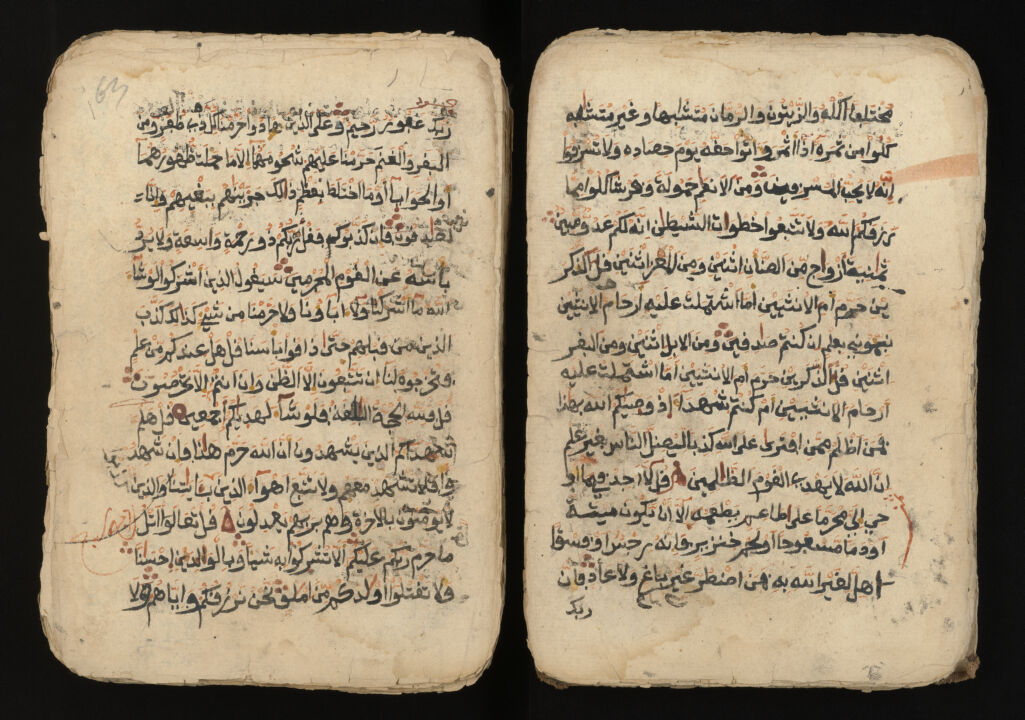 مختلفا اكله والزيتون والرمان متشبها وغير متشبه
كلوا من ثمره اذا اثمر واتوا حقه يوم حصاده ولا تسرفوا
انه لا يحب المسرفين ومن الانعم حمولة وفرشا كلوا مما
رزقكم الله ولا تتبعوا خطوات الشيطن انه لكم عدو مبين
ثمنية ازواج من الضان اثنين ومن المعز اثنين قل الذكر
ين حرم ام الانثيين اما اشتملت عليه ارحام الانثيين
نبوني بعلم ان كنتم صدقين ومن الابل اثنين ومن البقر
اثنين قل الذكرين حرم ام الانثيين اما اشتملت عليه
ارحام الانثيين ام كنتم شهدا اذ وصيكم الله بهذا
فمن اظلم ممن افترى على الله كذبا ليضل الناس بغير علم
ان الله لا يهدي القوم الظالمين قل لا اجد فيما او
حي الي محرما على طاعم يطعمه الا ان يكون ميتة
او دما مسفوحا او لحم خنزير فانه رجس او فسقا
اهل لغير الله به فمن اضطر غير باغ ولا عاد فان
ربك
ربك غفور رحيم وعلى الذين هادوا حرمنا كل ذي ظفر ومن
البقر والغنم حرمنا عليهم شحومهما الا ما حملت ظهورهما
او الحوايا او ما اختلط بعظم ذالك جزينهم ببغيهم وانا
لصدقون فان كذبوك فقل ربكم ذو رحمة واسعة ولا يرد
باسه عن القوم المجرمين سيقول الذين اشركوا لو شا
الله ما اشركنا ولا اباونا ولا حرمنا من شيء كذالك كذب
الذين من قبلهم حتى ذاقوا باسنا قل هل عندكم من علم
فتخرجوه لنا ان تتبعون الا الظن وان انتم الا تخرصون
قل فلله الحجة البلغة فلو شا لهديكم اجمعين قل هلم
شهداكم الذين يشهدون ان الله حرم هذا فان شهد
وا فلا تشهد معهم ولا تتبع اهوا الذين بايتنا والذين
لا يومنون بالاخرة وهم بربهم يعدلون قل تعالوا اتل
ما حرم ربكم عليكم الا تشركوا به شيا وبالوالدين احسنا
ولا تقتلوا اولدكم من املق نحن نرزقكم واياهم ولا